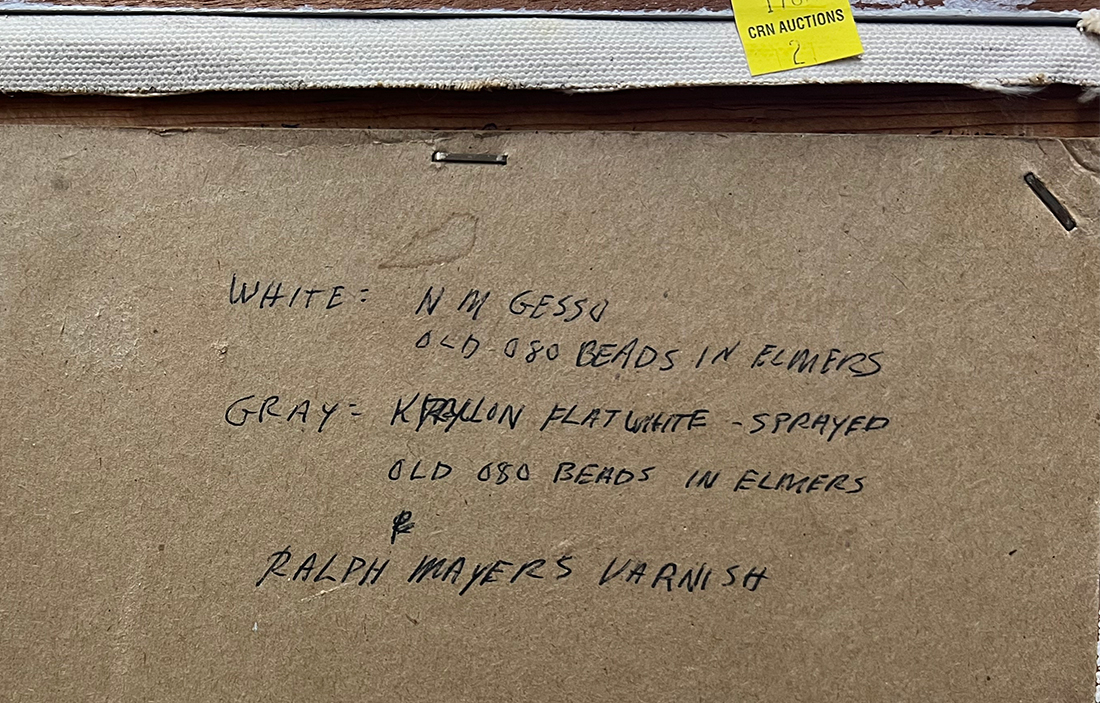 CRN AUCTIONS
2
WHITE= N M GESSO
OLD 080 BEADS IN ELMERS
GRAY= KRYLON FLAT WHITE - SPRAYED
OLD 080 BEADS IN ELMERS
&
RALPH MAYERS VARNISH